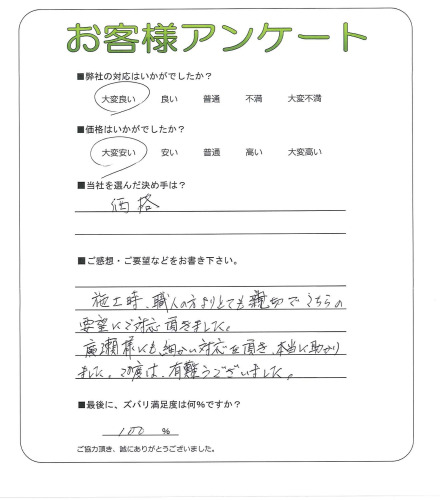 お客様アンケート
■弊社の対応はいかがでしたか？
大変良い 良い 普通 不満 大変不満
■価格はいかがでしたか？
大変安い 安い 普通 高い 大変高い
■当社を選んだ決め手は？
価格
■ご感想・ご要望などをお書き下さい。
施工時、職人の方よりとても親切でこちらの
要望にご対応頂きました。
廣瀬様にも細かい対応を頂き、本当に助かり
ました。この度は、有難うございました。
■最後に、ズバリ満足度は何％ですか？
100 ％
ご協力頂き、誠にありがとうございました。